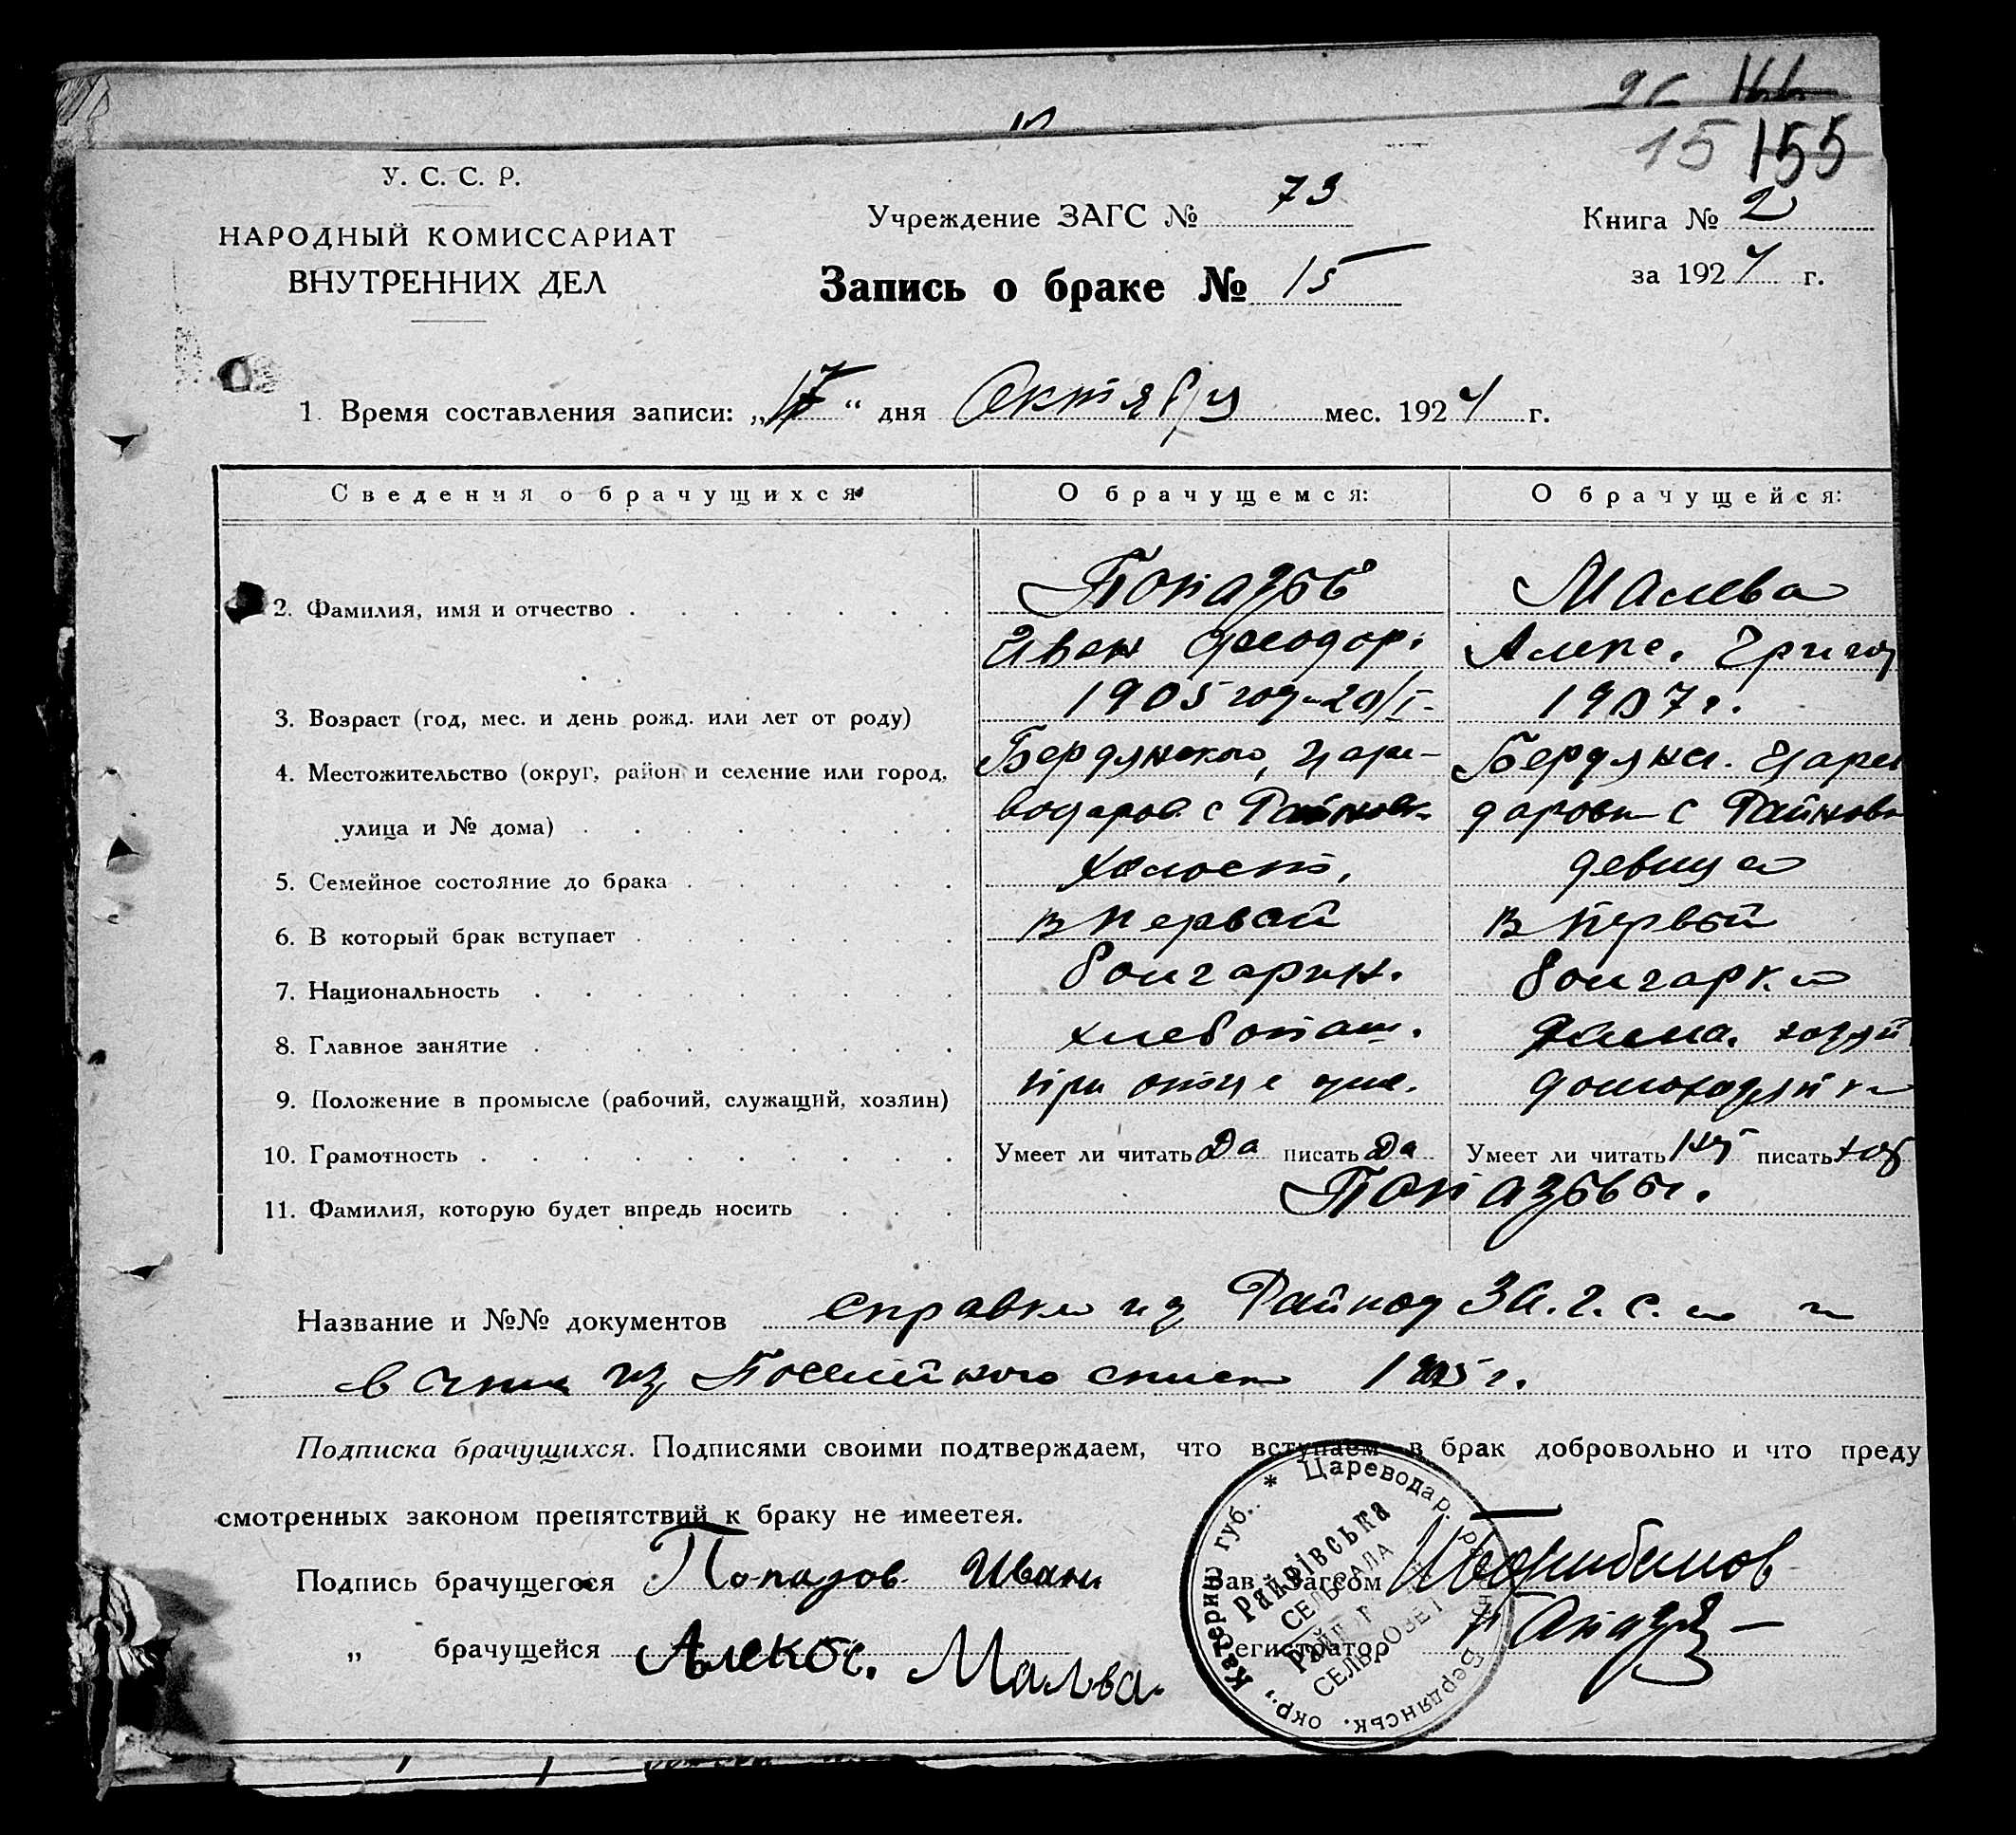 15 155
У. С. С. Р.
НАРОДНЫЙ КОМИССАРИАТ
ВНУТРЕННИХ ДЕЛ
Учреждение ЗАГС № 73
Запись о браке № 15
Книга № 2
за 1924 г.
1. Время составления записи: „17“ дня Октября мес. 1924 г.
Сведения о брачущихся О брачущемся: О брачущейся:
2. Фамилия, имя и отчество Попазов Малева
Иван Феодор. Алекс. Григор
3. Возраст (год, мес. и день рожд. или лет от роду) 1905 год 20/I 1907 г.
4. Местожительство (округ, район и селение или город, Бердянского, Царе- Бердянск. Царев
улица и № дома) водаров. с Райновк. даровк с Райновк
5. Семейное состояние до брака холост, девица
6. В который брак вступает в первый в первый
7. Национальность болгарин. болгарка
8. Главное занятие хлебопаш. дома. хозяй
9. Положение в промысле (рабочий, служащий, хозяин) при отце домохозяйка
10. Грамотность Умеет ли читать Да писать Да Умеет ли читать нет писать нет
11. Фамилия, которую будет впредь носить Попазовы.
Название и №№ документов справка из Райнов З А. г. с. а и
из Посемейного списка 1905 г.
Подписка брачущихся. Подписями своими подтверждаем, что вступаем в брак добровольно и что преду
смотренных законом препятствий к браку не имеетея.
Подпись брачущегося Попазов Иван
Зав. Загсом
„ брачущейся Алекс. Малва.
Регистратор
Катерин. губ. * Цареводар. району, Бердянськ. окр.,
Райнівська
СЕЛЬРАДА
СЕЛЬСОВЕТ